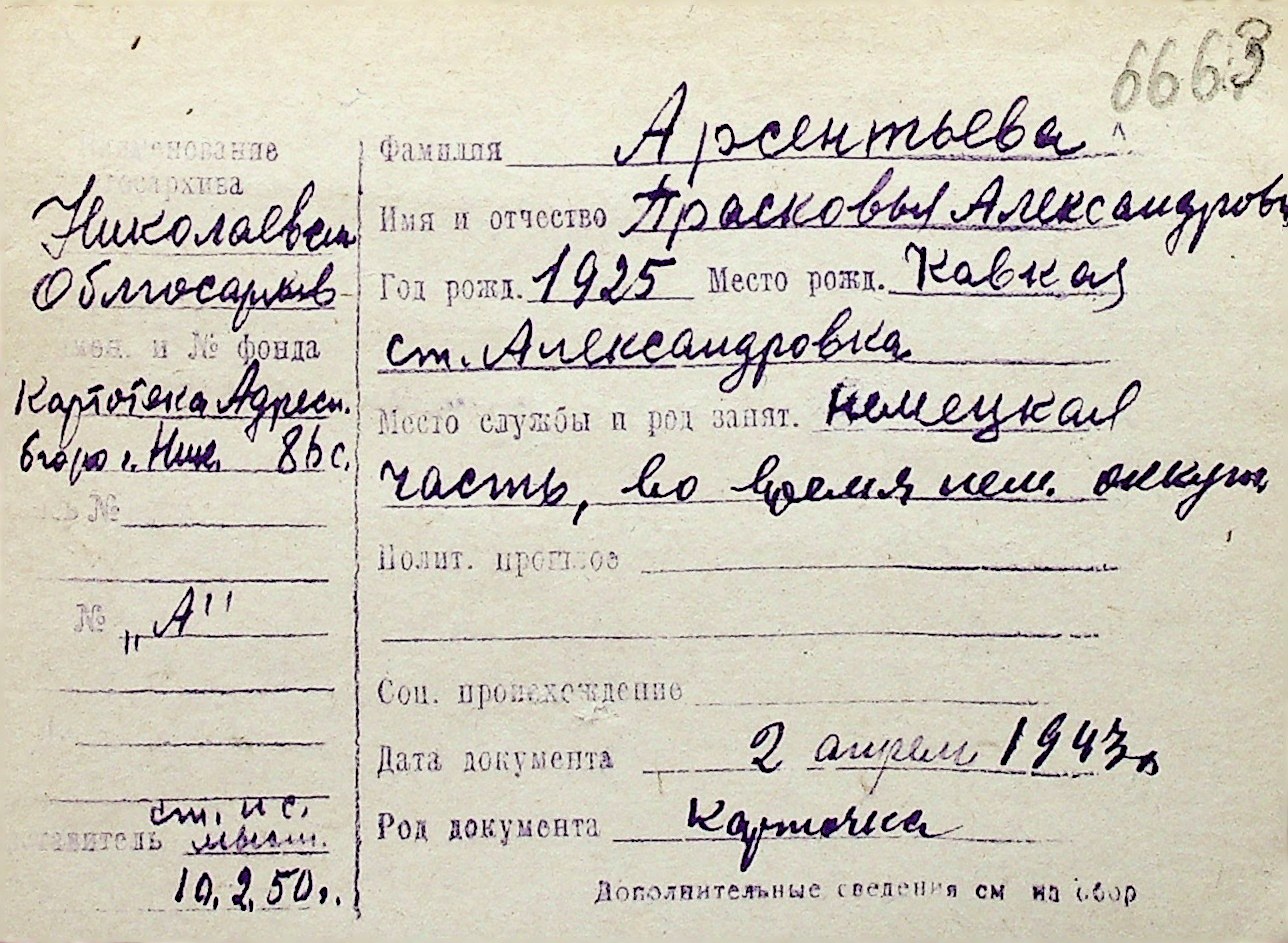 6663
Наименование
госархива
Николаевск
Облгосархив
наимен. и № фонда
Картотека Адресн.
бюро г. Ник.
№
№ „А"
ст. н с.
10.2.50 г.
Фамилия Арсентьева
Имя и отчество Прасковья Александровн
Год рожд. 1925 Место рожд. Кавказ
ст. Александровка
Место службы и род занят. немецкая
часть, во время нем. оккуп.
Полит. прошлое
Соц. происхождение
Дата документа 2 апреля 1943 г.
Род документа Карточка
Дополнительные сведения см на обор